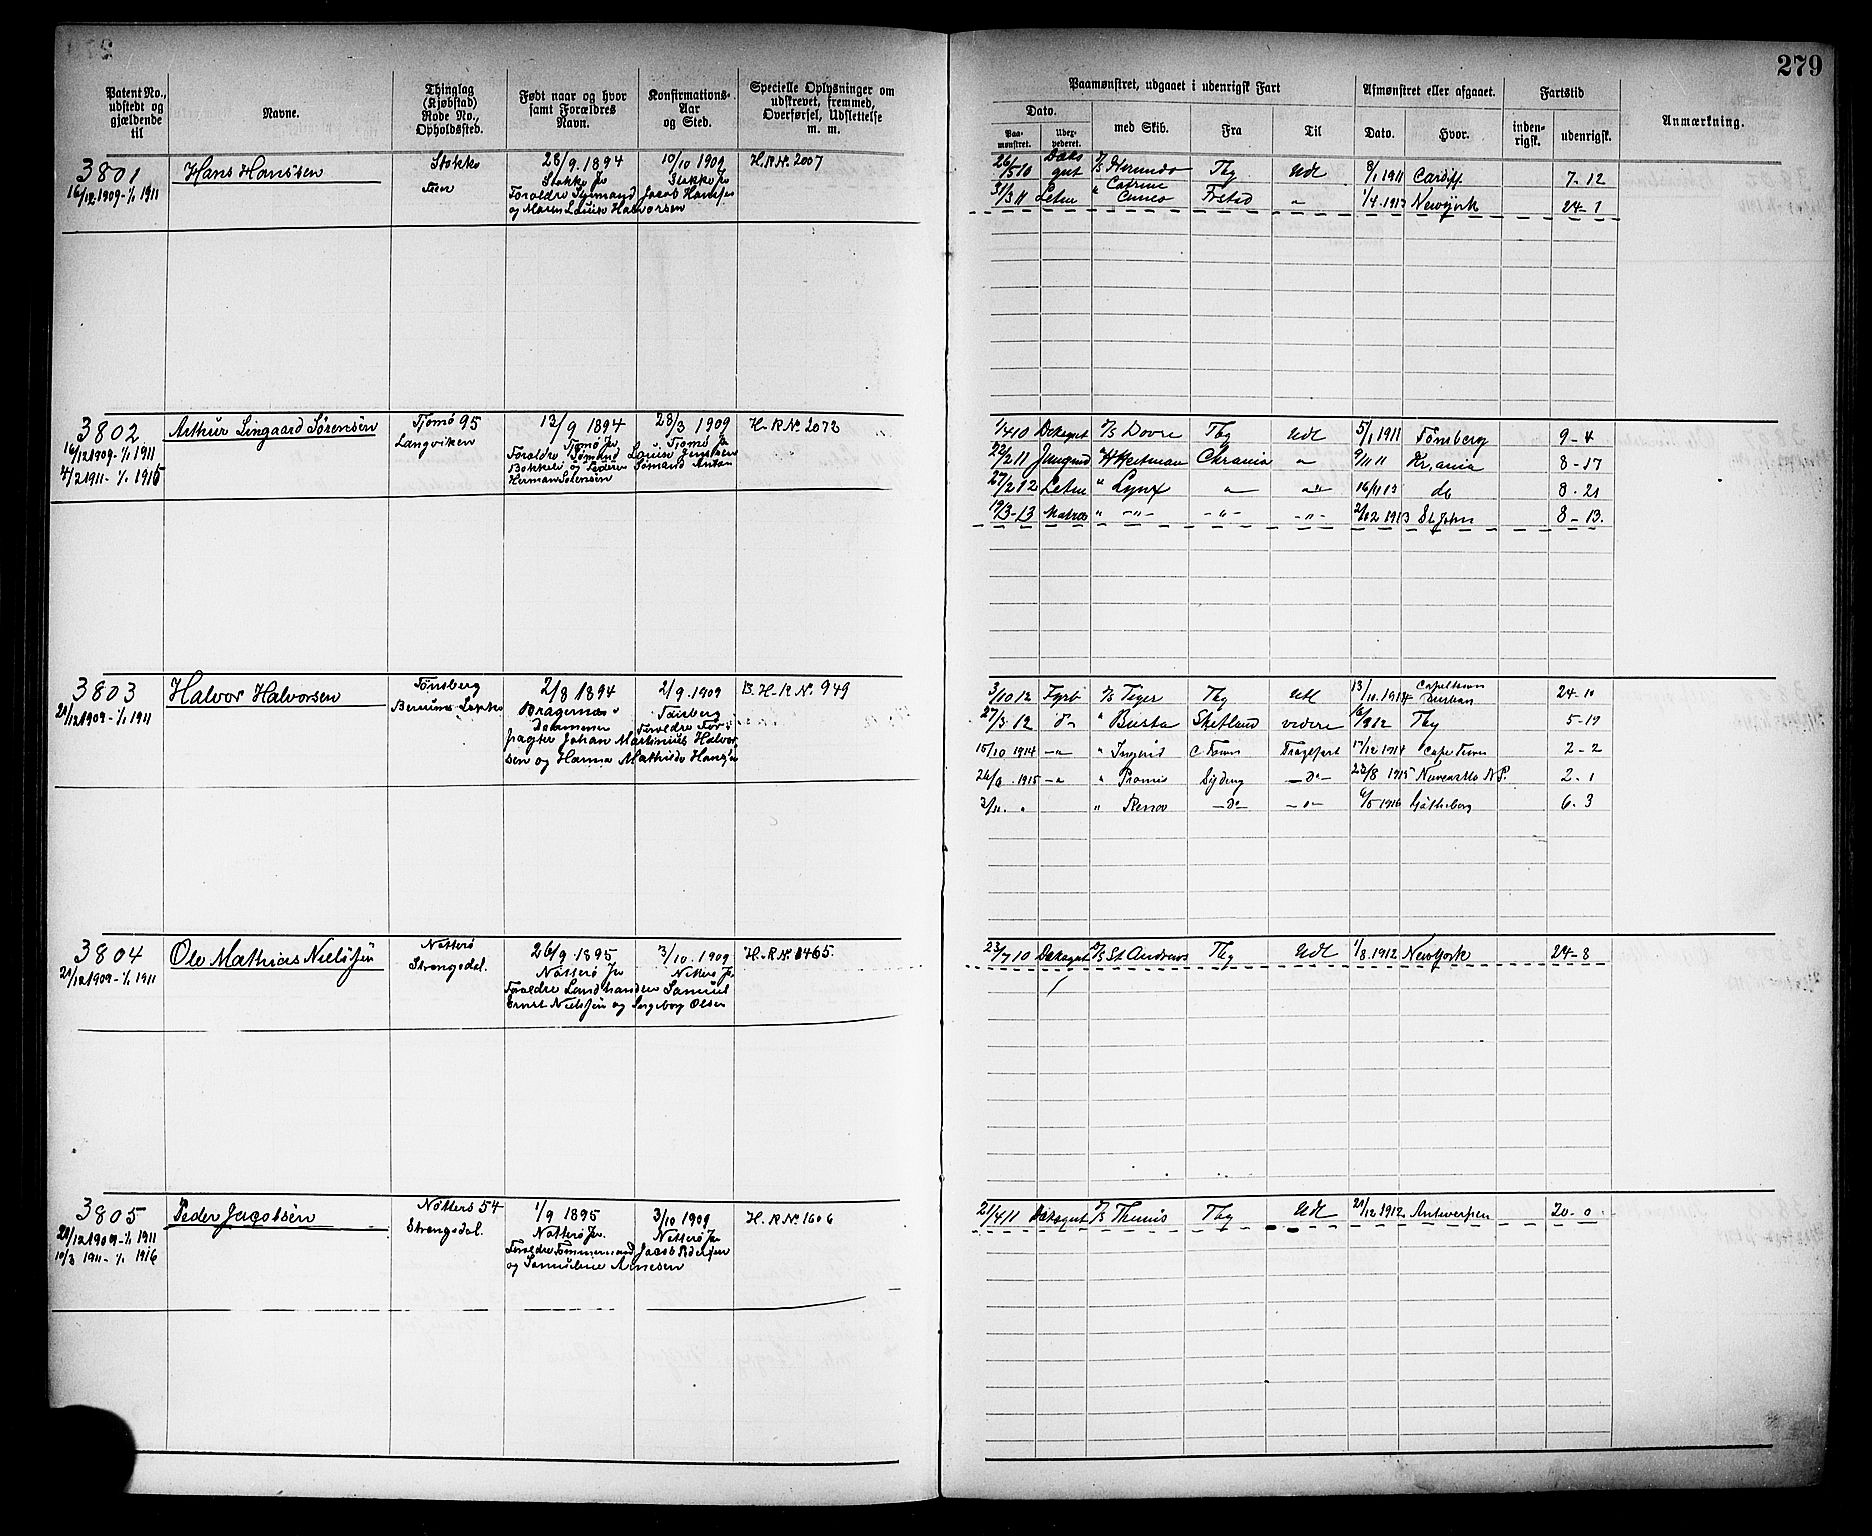 279
Patent No., udstedt og gjældende til
Navne.
Thinglag (Kjøbstad) Rode No., Opholdssted.
Født naar og hvor samt Forældres Navn.
Konfirmations-Aar og Sted.
Specielle Oplysninger om udskrevet, fremmed, Overførsel, Udslettelse m. m.
Paamønstret, udgaaet i udenrigsk Fart
Dato.
Paamønstret.
med Skib.
Fra
Til
Afmønstret eller afgaaet.
Dato.
Hvor.
Fartstid
indenrigsk.
udenrigsk.
Anmærkning.
3801
16/12 1909 - 1/1 1911
Hans Hansen
Stokke
28/9. 1894
Stokke Pr
10/10 1909
Stokke Pr
Forældre Sømand Jacob Hansen
og Maren Louise Halvorsen
H. R. No. 2007
26/5 10 Dæksgut Tbg Udl 8/1 1911 Cardiff 7-12
31/3 11 Letm " Frstad " 1/4. 1913 Newyork 24-1
3802
16/12 1909 - 1/1 1911
4/2 1911 - 1/1 1915
Arthur Lingaard Sørensen
Tjømø 95
Langviken
13/9 1894
Tjømø Pr
28/3 1909
Tjømø Pr
Herman Sørensen
H. R No. 2072
1/4 10 Dæksgut Dovre Tbg Udl 5/1 1911 Tønsberg 9-4
22/2 11 Jungmd Chrania " 9/11 11 Kr.ania 8-17
27/2 12 Letm " Lynx " " 16/1 13 do 8-21
19/3-13 Matros " -"- -"- -"- 2/12 1913 St John 8-13.
3803
21/12 1909 - 1/1 1911
Halvor Halvorsen
Tønsberg
2/8 1894
Bragernæs
Drammen
2/9. 1909
Tønsberg
Forældre For
pagter Johan Martinius Halvor
sen og Hanna Mathilde Hansen
B. H. R No. 949
3/10 12 Fyrb Teger Tbg Utl 13/10. 1914 Capetown Durban 24-10
27/5 12 do " Busta Shetland videre 16/9 12 Tbg 5-19
15/10 1914 -"- " Ingerid C Town Fragtfart 17/12 1914 Cape Town 2-2
1915 -"- " Promis Sydney -do- 23/8 1915 2-1
2/11. " " -do- -"- 6/5 1916 Gøtheborg 6-3
3804
21/12 1909 - 1/1 1911
Ole Mathias Nielsen
Nøtterø
Strengsdal.
26/9. 1895
Nøtterø Pr
3/10. 1909
Nøtterø Pr
Forældre Landhandler Samuel
Ernst Nielsen og Ingeborg Olsen
H. R No. 1465.
23/7 10 Dæksgut St Andrews Tbg Udl 1/8. 1912 NewYork 24-8
3805
21/12 1909 - 1/1 1911
10/3 1911 - 1/1 1916
Peder Jacobsen
Nøtterø 54
Strengsdal.
1/9 1895
Nøtterø Pr.
3/10 1909
Nøtterø Pr
Forældre Tømmermand Jacob Pedersen
og Samueline Arnesen
H. R No. 1606
21/4 11 Dæksgut Themis Tbg Udl 21/12 1912 Antwerpen 20-0